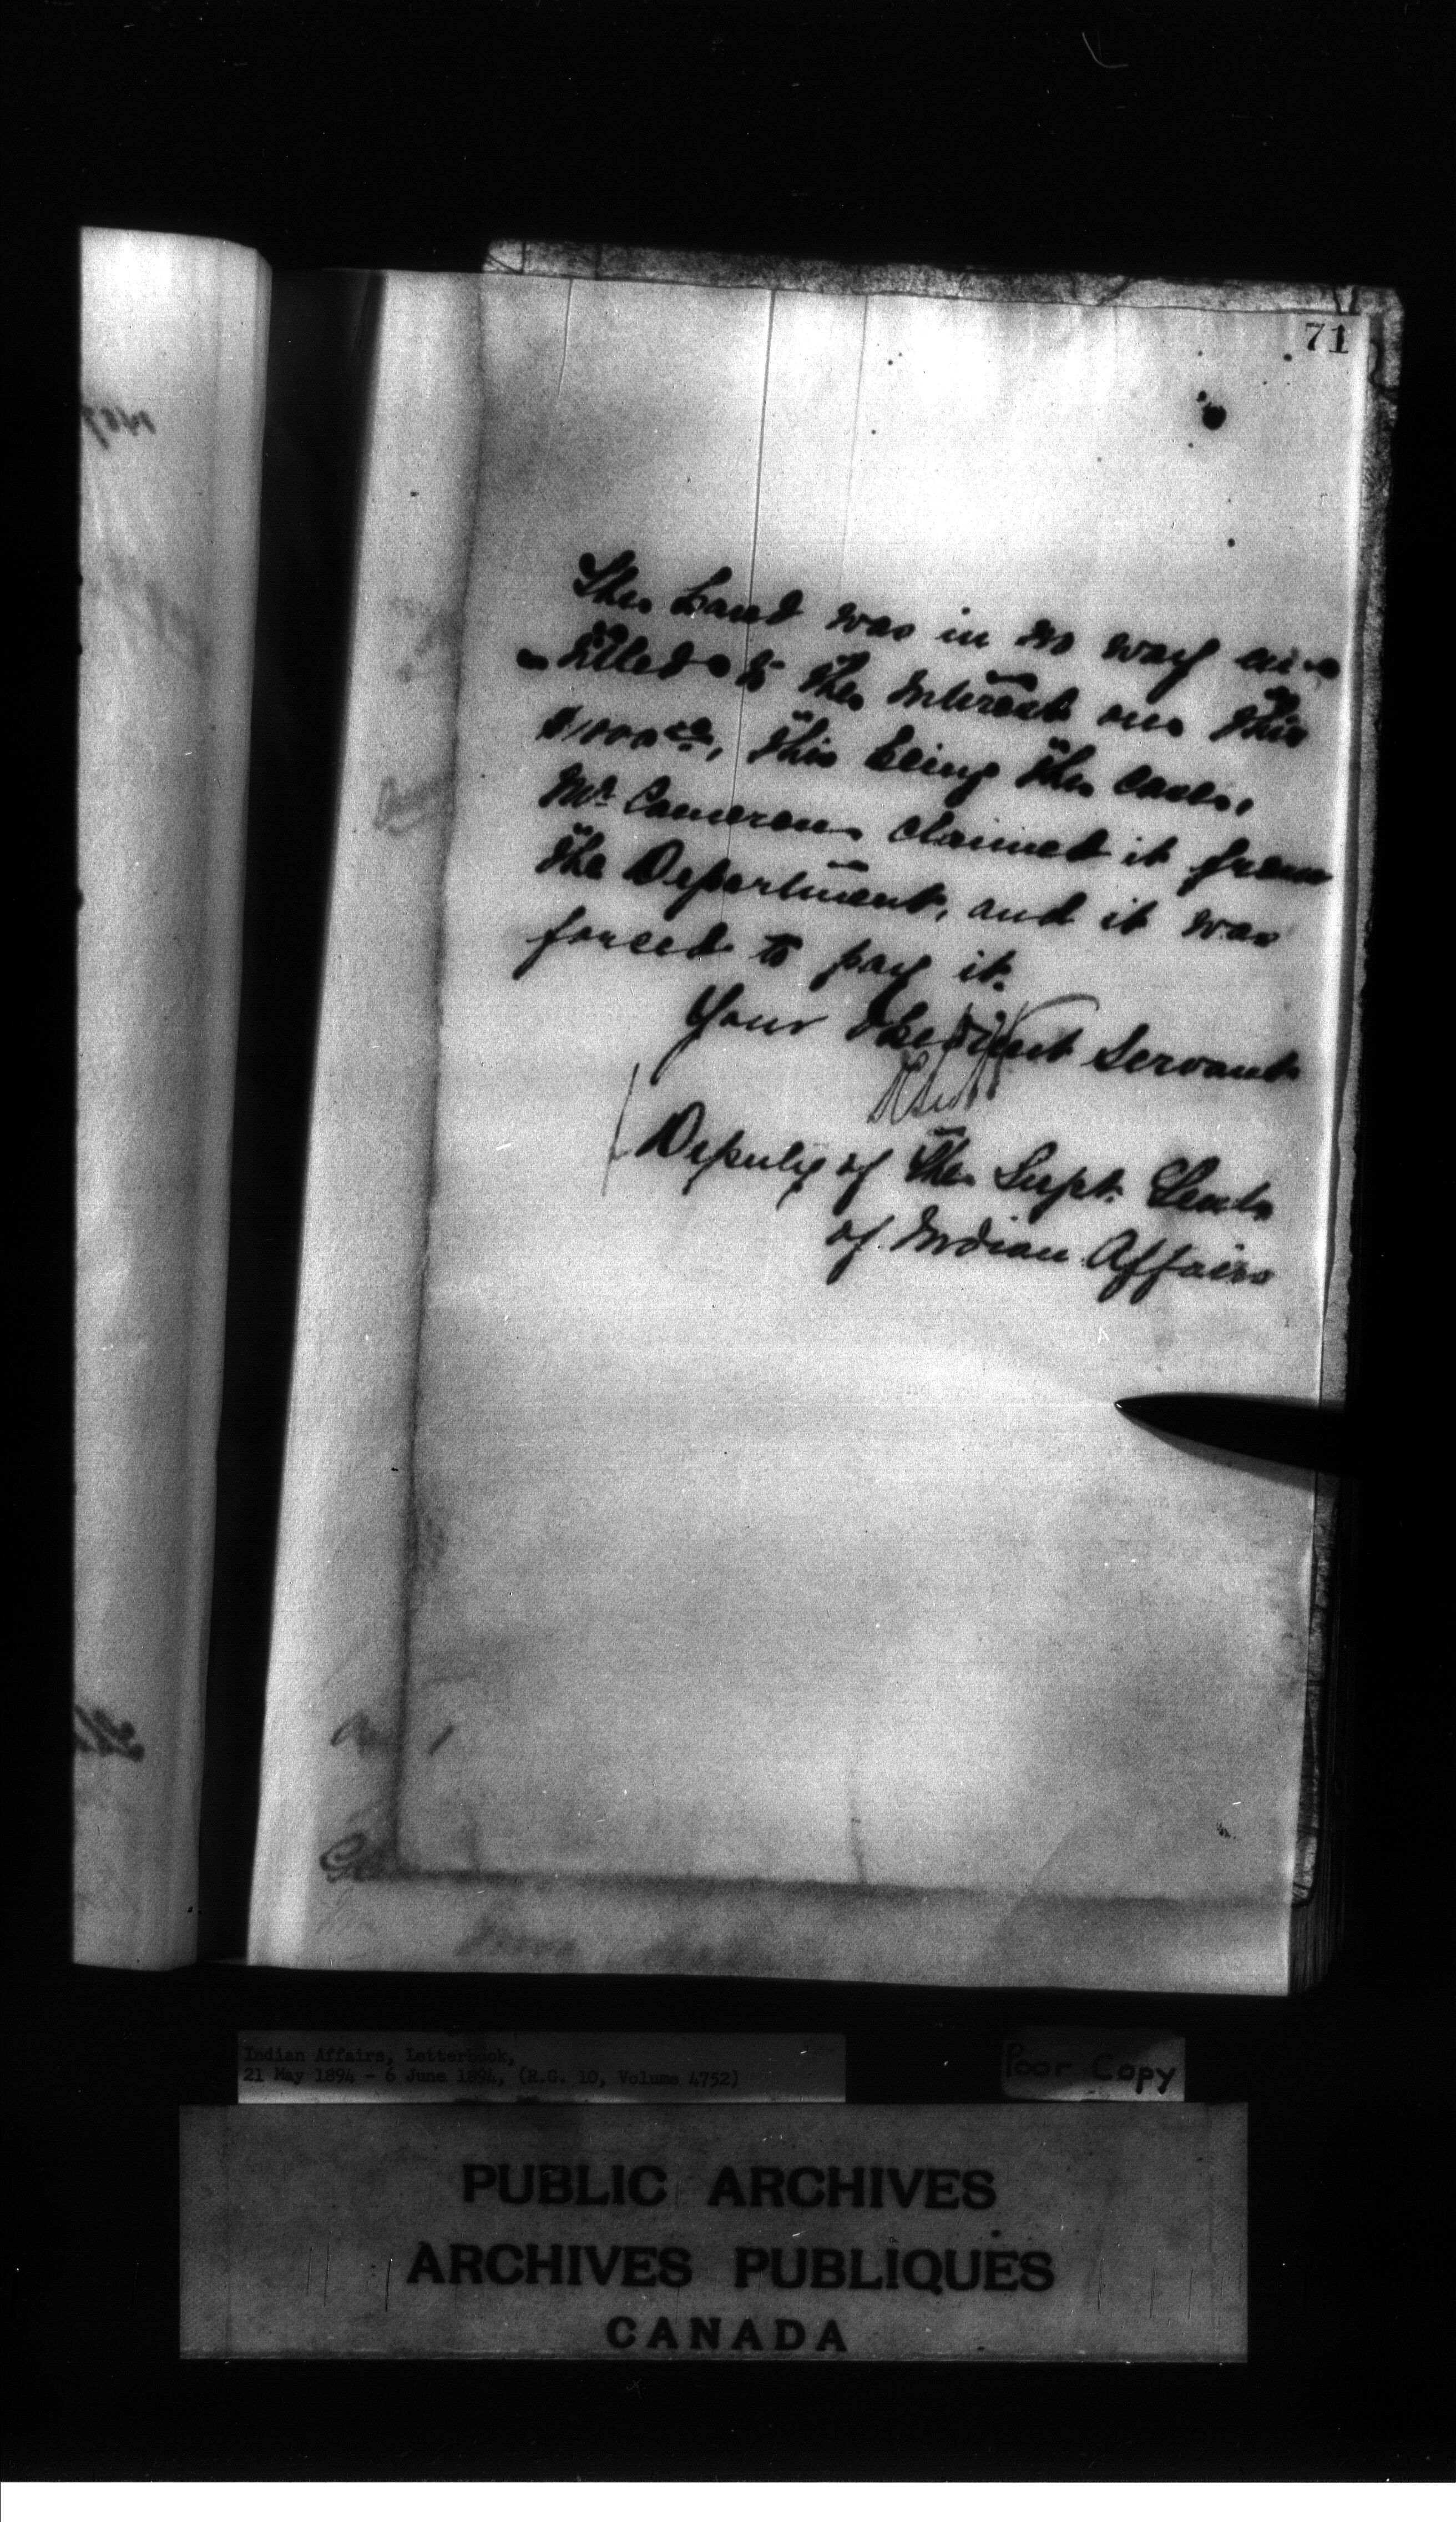 71
The Band was in no way en-
-titled to the interest on this
$1000.00, this being the case,
Mr. Cameron claimed it from
the Department, and it was
forced to pay it.
Your obedient servant
Deputy of the Supt. Genl.
of Indian Affairs
Indian Affairs, Letterbook,
21 May 1894 - 6 June 1894, (R.G. 10, Volume 4752)
Poor Copy
PUBLIC ARCHIVES
ARCHIVES PUBLIQUES
CANADA